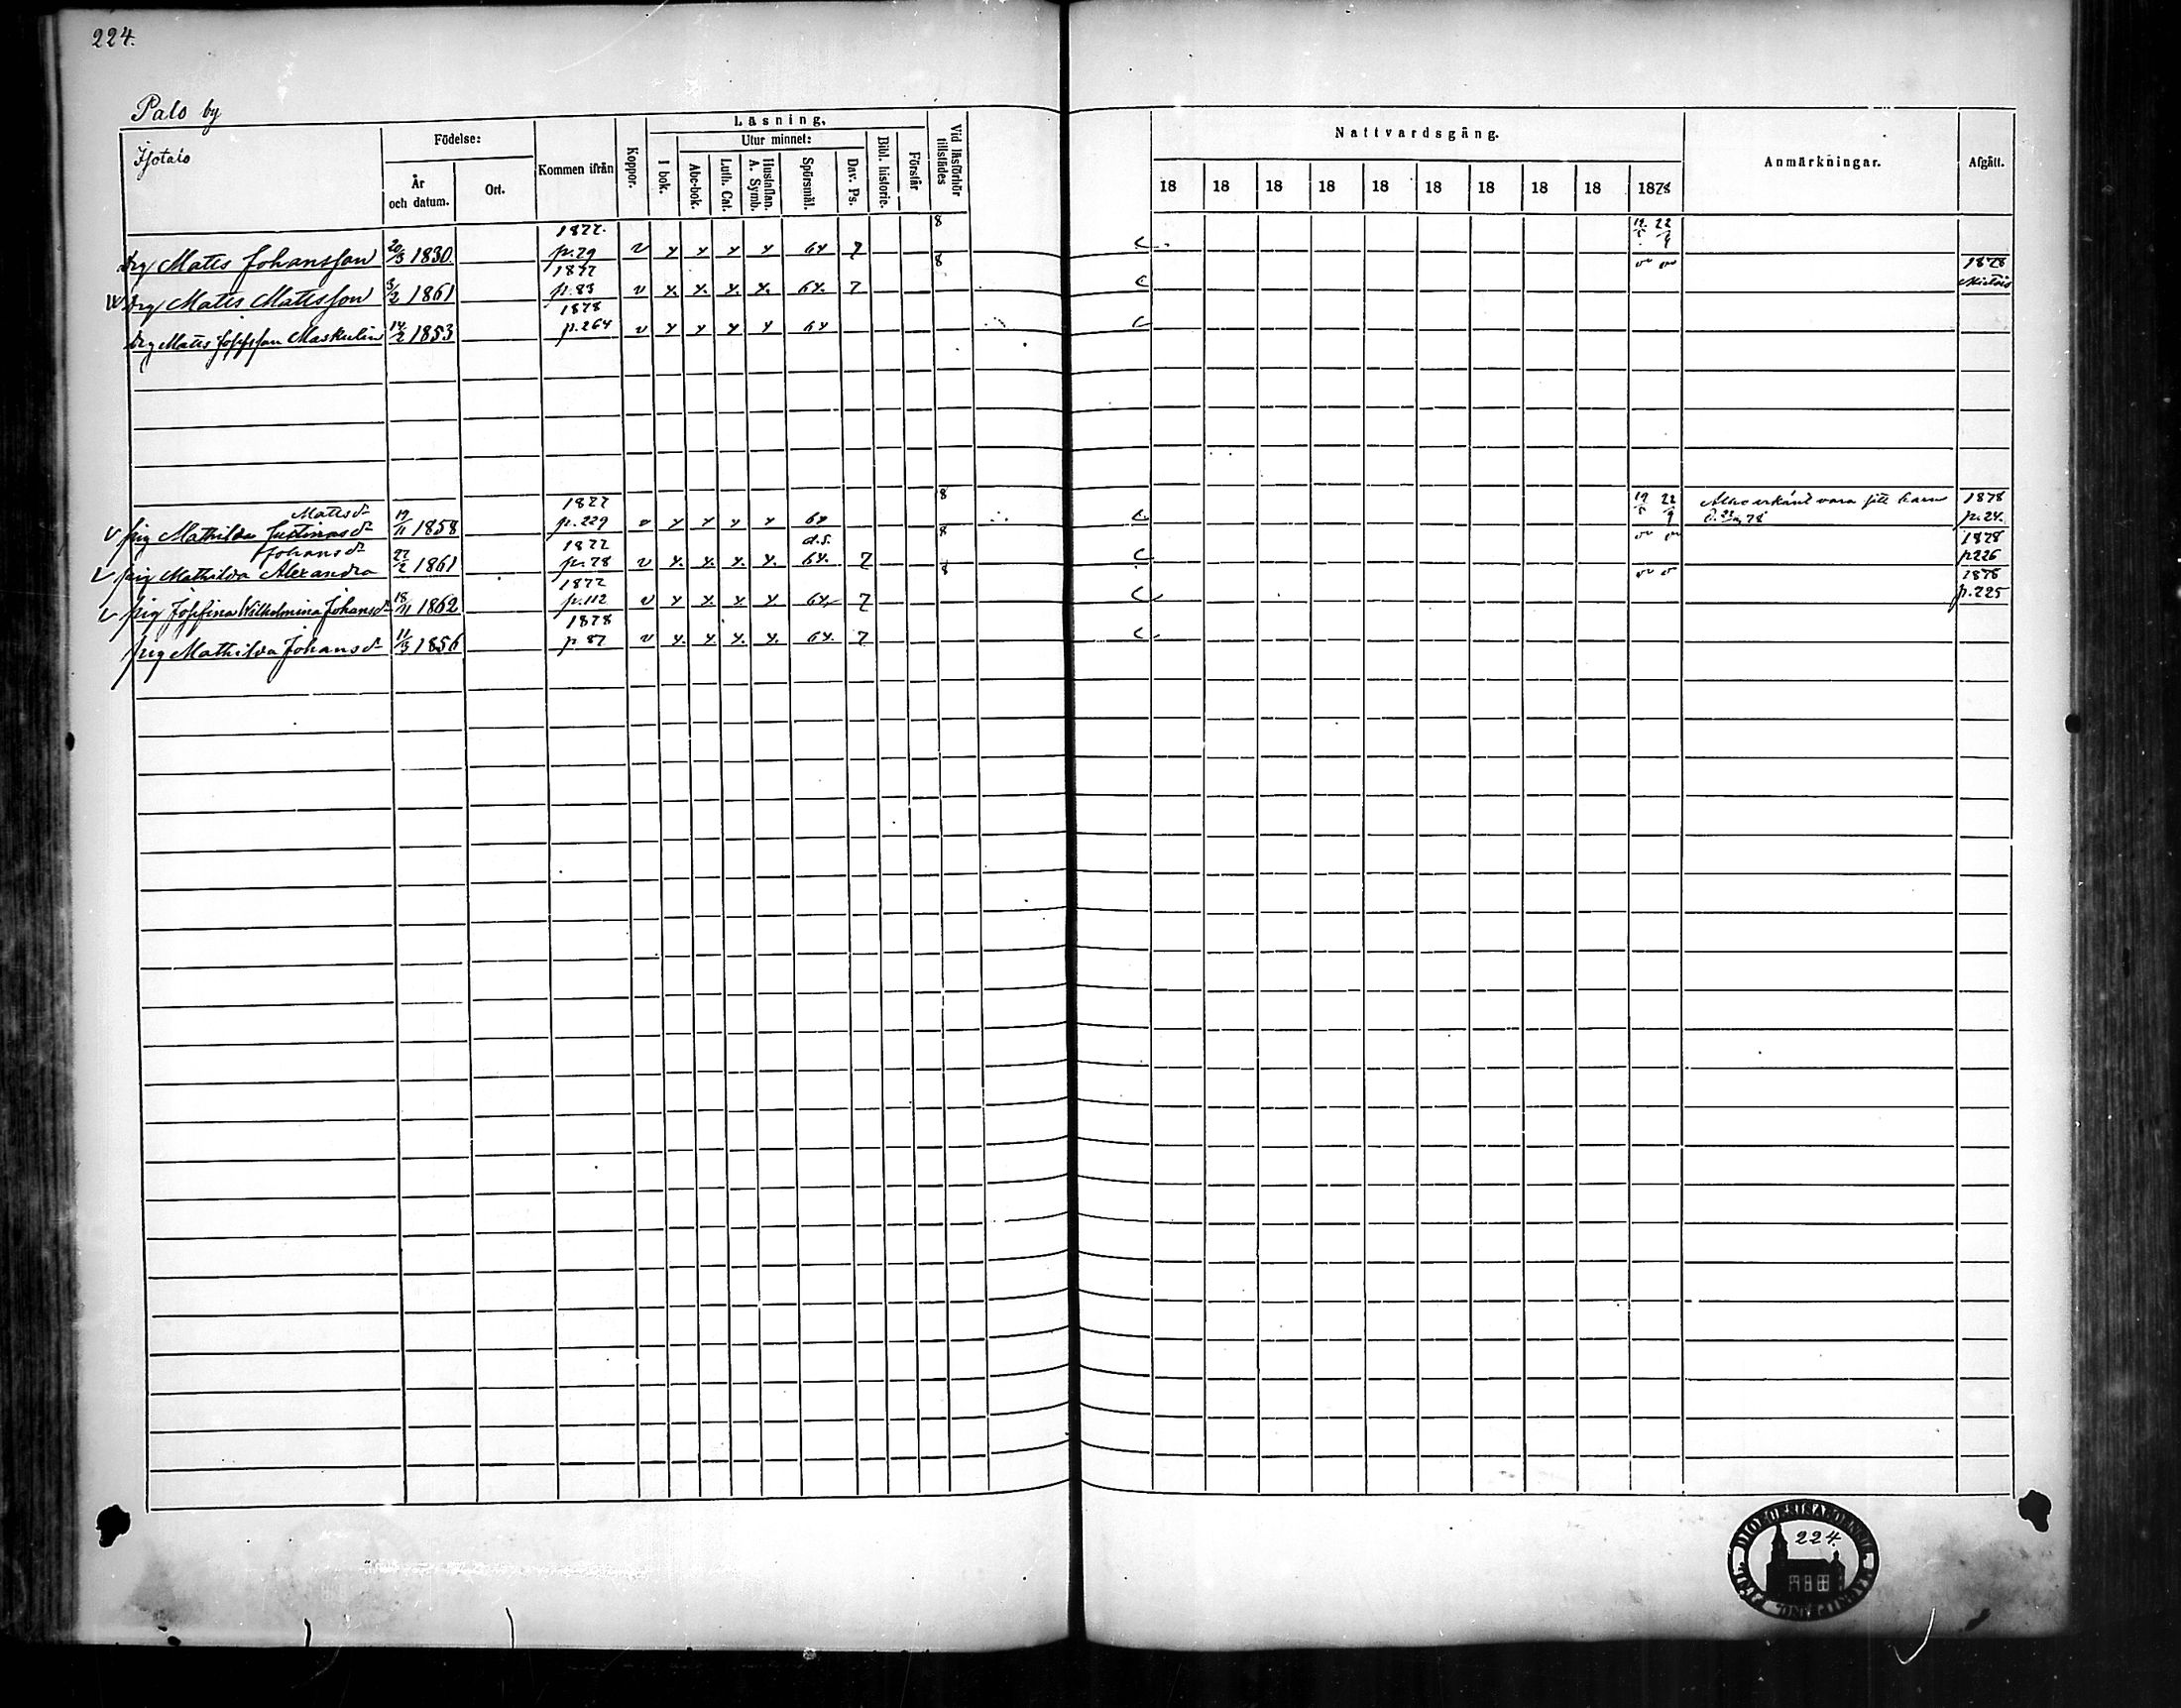 224.
Palo by
Isotalo
Födelse:
År och datum.
Ort.
Kommen ifrån
Koppor.
Läsning.
I bok.
Utur minnet:
Abc-bok.
Luth. Cat.
Hustaflan. A. Symb.
Spörsmål.
Dav. Ps.
Bibl. historie.
Förstår
Vid läsförhör tillstädes
Nattvardsgång.
18 18 18 18 18 18 18 18 18 1878
Anmärkningar.
Afgått.
drg Matts Johansson 20/3 1830 1877. p. 79 v y y y y 64 7 8
drg Matts Mattsson 5/2 1861 1877 p. 83 v y. y. y. y. 64. 7 8 1878
drg Matts Josefsson Maskulin 14/2 1853 1878 p. 264 v y y y y 64
pig Mathilda Justina Matsdr 19/11 1858 1877 p. 229 v y y y y 64 8 19/5 22/9 1878 p. 24.
pig Mathilda Alexandra Johansdr 22/2 1861 1877 p. 78 v y. y. y. y. d.s. 64. 7 8 1878 p 226
pig Josefina Wilhelmina Johansdr 18/11 1862 1877 p. 112 v y y. y. y. 64 7 8 1878 p. 225
pig Mathilda Johansdr 11/3 1856 1878 p. 87 v y. y. y. y. 64. 7
224.